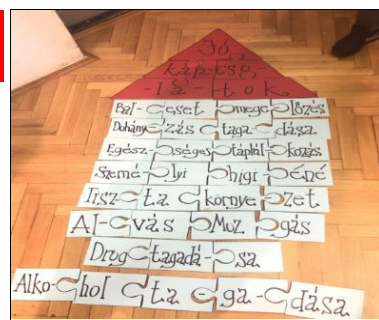 Jó,
kap-cso,-
-la-tok
Bal-eset megelőzés
Dohányzás tagadása
Egész-séges táplálkozás
Szemé-lyi higiéné
Tisz-ta környezet
Al-vás Mozgás
Drog tagadá-sa
Alko-hol ta ga-dása